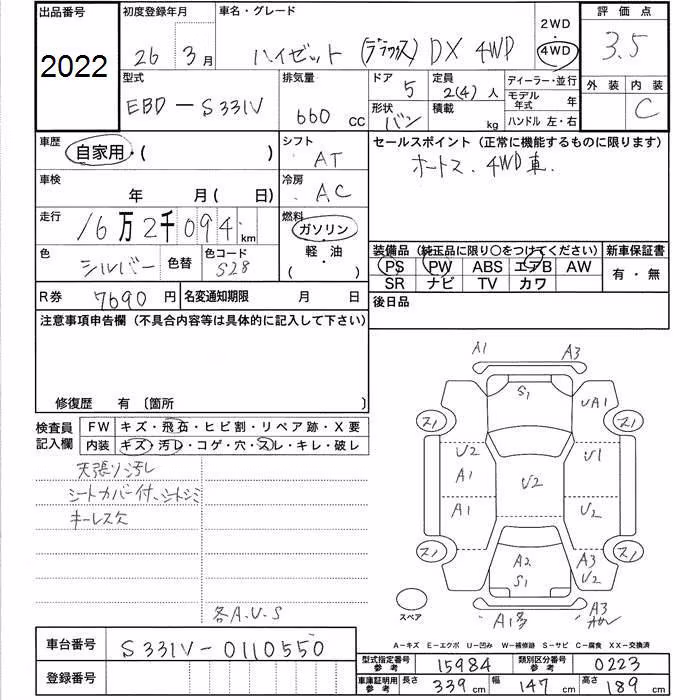 出品番号 初度登録年月 車名・グレード 2WD 評価点
2022 26年 3月 ハイゼット (デラックス) DX 4WD 4WD 3.5
型式 排気量 ドア 定員 ディーラー・並行 外装 内装
EBD-S331V 660cc 5 2(4)人 モデル年式 年 C
形状 バン 積載 kg ハンドル 左・右
車歴 自家用・( ) シフト AT セールスポイント (正常に機能するものに限ります)
オートマ、4WD車、
車検 年 月( 日) 冷房 AC
走行 16万2千094km 燃料 ガソリン
軽・油
( ・ )
色 シルバー 色替 色コード S28
装備品 (純正品に限り○をつけてください) 新車保証書
PS PW ABS エアB AW 有・無
SR ナビ TV カワ
R券 7690円 名変通知期限 月 日 後日品
注意事項申告欄 (不具合内容等は具体的に記入して下さい)
修復歴 有 〔箇所 〕
検査員記入欄 FW キズ・飛石・ヒビ割・リペア跡・X要
内装 キズ・汚レ・コゲ・穴・スレ・キレ・破レ
天張り汚レ
シートカバー付、シートシミ
キーレス欠
各A.U.S
A1 A3
S1
UA1
ス1 ス1
U2 U1
A1 U2
A1 U2
ス1 ス1
A2 A3
S1 U2
スペア A1多 A3
A-キズ E-エクボ U-凹み W-補修跡 S-サビ C-腐食 XX-交換済
車台番号 S331V-0110550
登録番号
型式指定番号参考 15984 類別区分番号参考 0223
車庫証明用参考 長さ 339cm 幅 147cm 高さ 189cm